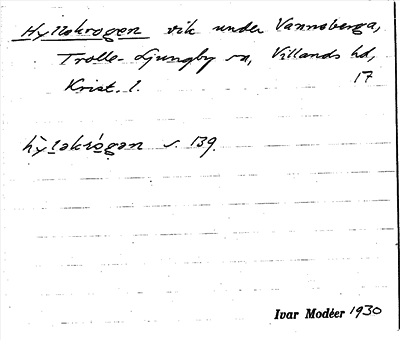 Hyllekrogen vik under Vannaberga,
Trolle-Ljungby sn, Villands hd,
Krist. l. 17
hỳləkrógən s. 139.
Ivar Modéer 1930